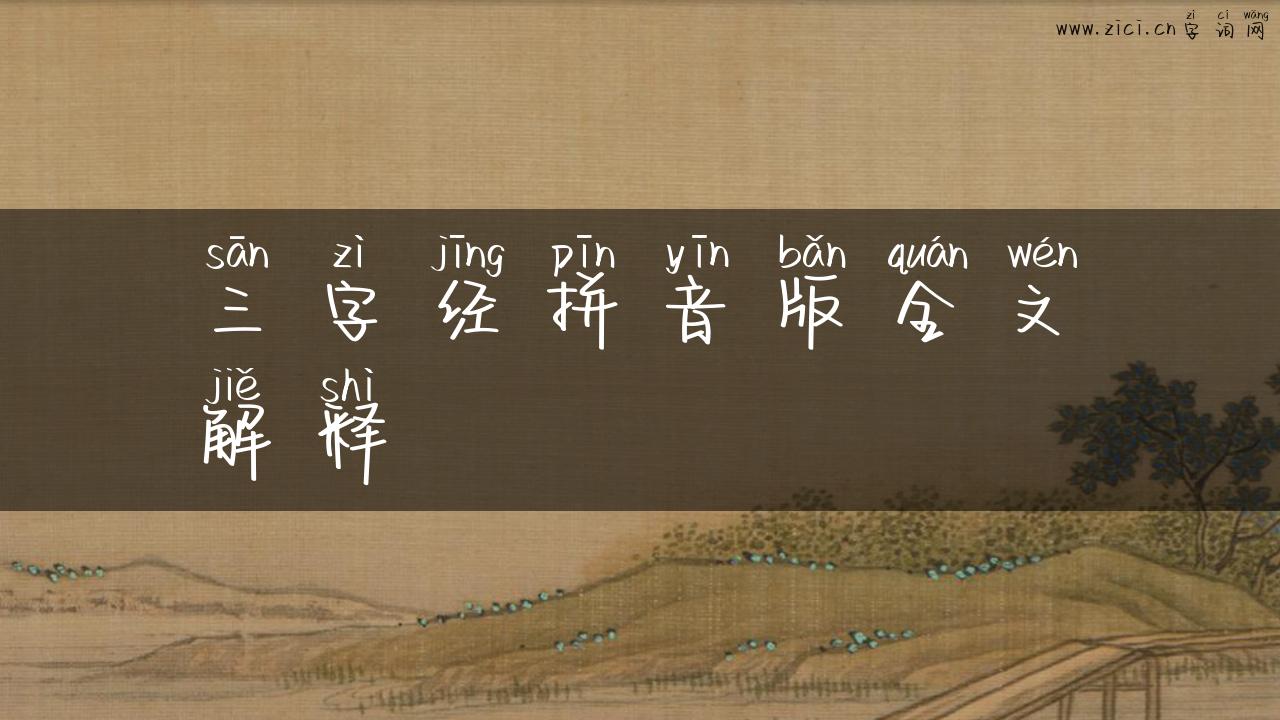 zì cí wǎng
www.zici.cn字词网
sān zì jīng pīn yīn bǎn quán wén
三字经拼音版全文
jiě shì
解释